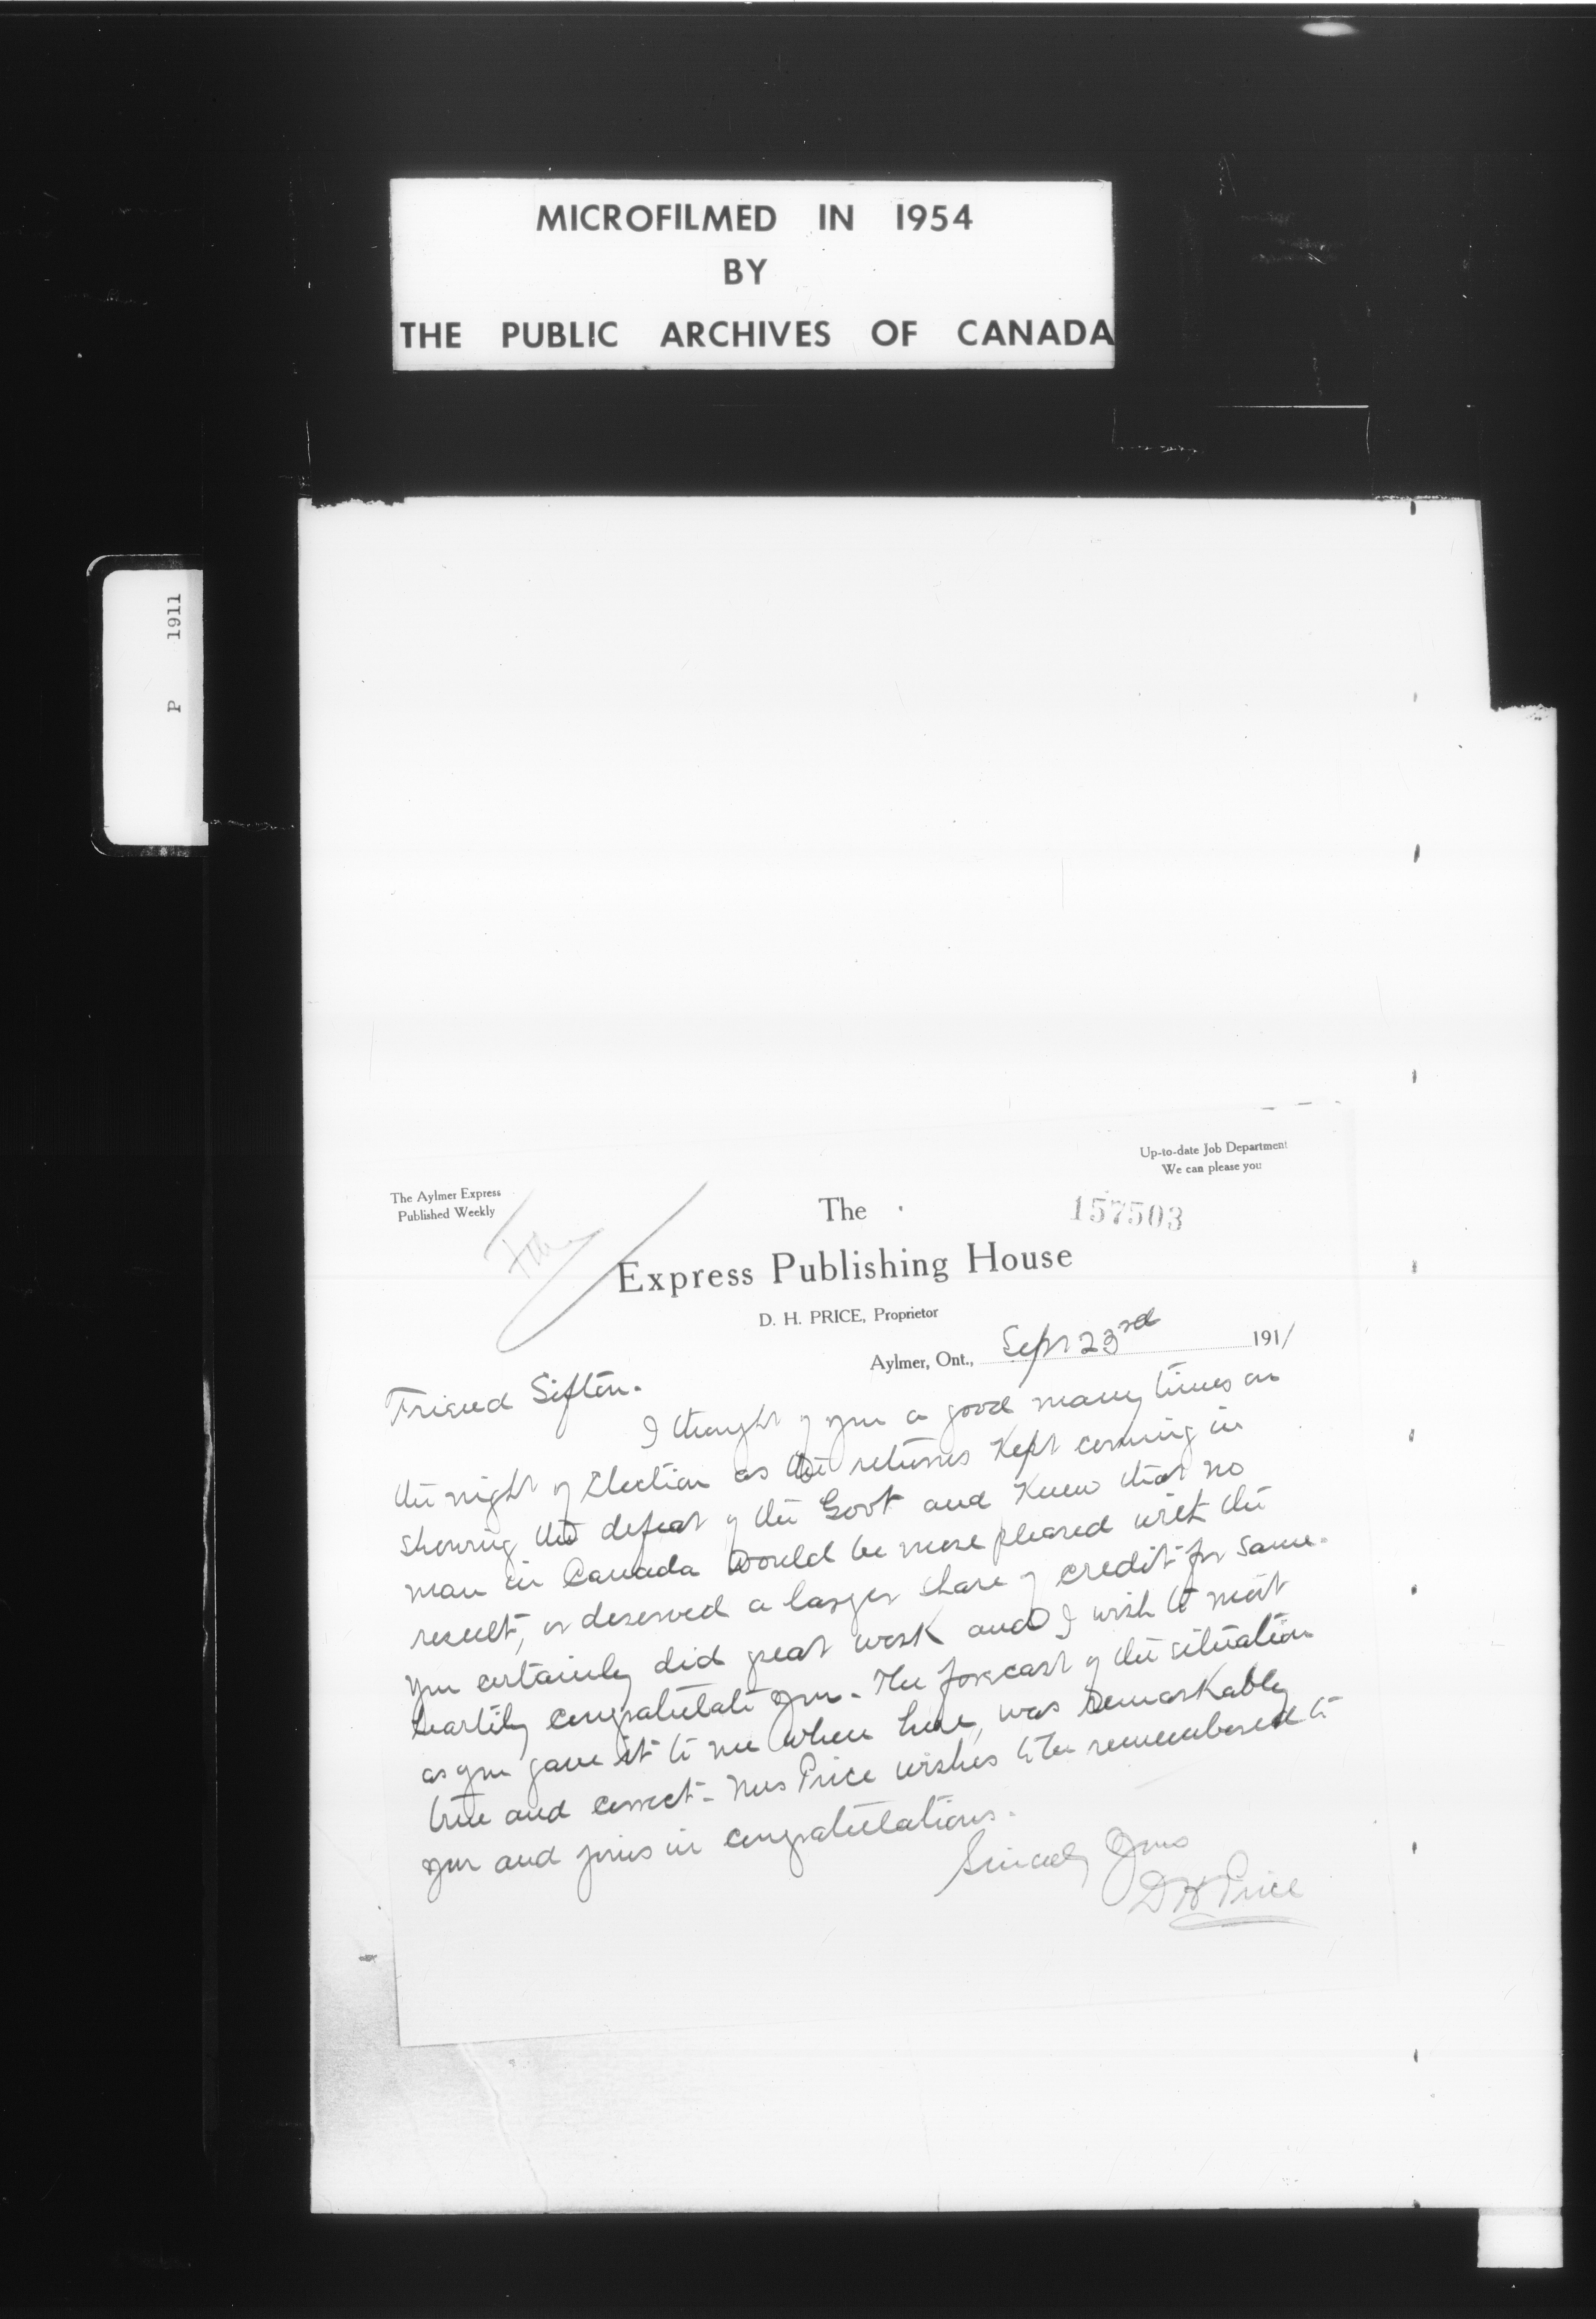 MICROFILMED IN 1954
BY
THE PUBLIC ARCHIVES OF CANADA
P 1911
Up-to-date Job Department
We can please you
The Aylmer Express
Published Weekly
The
157503
Express Publishing House
D. H. PRICE, Proprietor
Aylmer, Ont., Sept 23rd 1911
Friend Sifton.
I thought of you a good many times on
the night of Election as the returns Kept coming in
showing the defeat of the Govt and Knew that no
man in Canada would be more pleased with the
result, or deserved a larger share of credit for same.
You certainly did great work and I wish to most
heartily congratulate you. The forecast of the situation
as you gave it to me when here, was remarkably
true and correct - Mrs Price wishes to be remembered to
you and joins in congratulations.
Sincerely Yours
D H Price